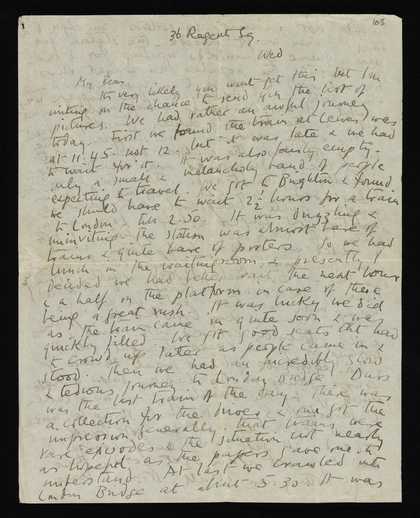 105
36 Regent Sq.
Wed
My dear
It's very likely you wont get this but I'm
writing on the chance to send you the list of
pictures. We had rather an awful journey
today. First we found the train at Lewes was
at 11.45. not 12. but it was late & we had
to wait for it. It was also fairly empty.
only a small & melancholy band of people
expecting to travel. We got to Brighton & found
we should have to wait 2½ hours for a train
to London till 2.30. It was drizzling &
uninviting. The station was almost bare of
trains & quite bare of porters. So we had
lunch in the waiting room & presently I
decided we had better wait the next hour
& a half on the platform in case of there
being a great rush. It was lucky we did
as the train came in quite soon & was
quickly filled. We got good seats but had
to crowd up later as people came in &
stood. Then we had an incredibly slow
& tedious journey to London Bridge. Ours
was the last train of the day. There was
a collection for the driver & one got the
impression generally that trains were
rare episodes & the situation not nearly
as hopeful as the papers gave one to
understand. At last we crawled into
London Bridge at about 5.30. It was